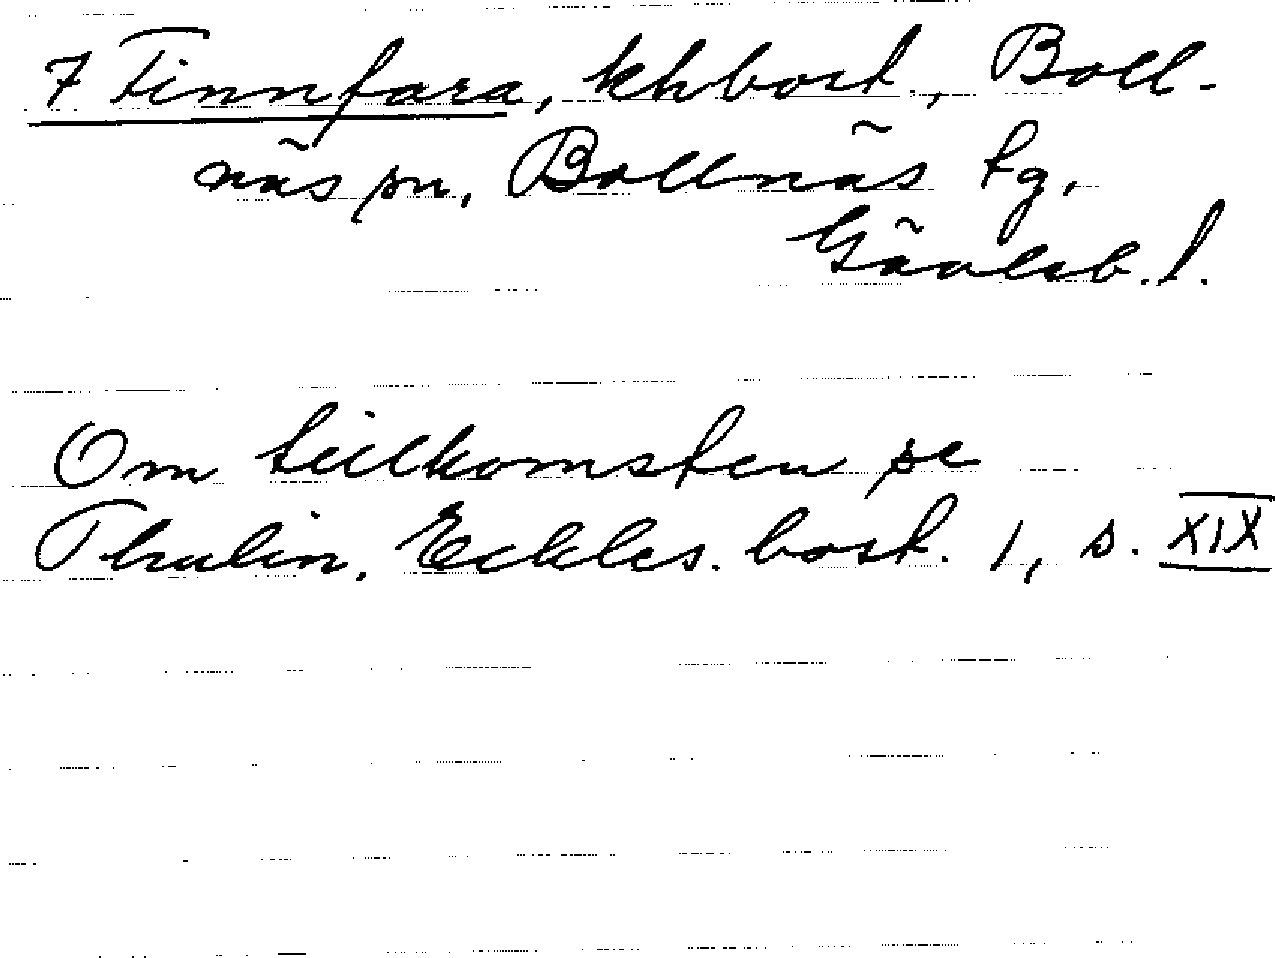 7 Finnfara, khbost., Boll-
näs sn, Bollnäs tg,
Gävleb. l.
Om tillkomsten se
Thulin, Eckles. bost. 1, s. XIX